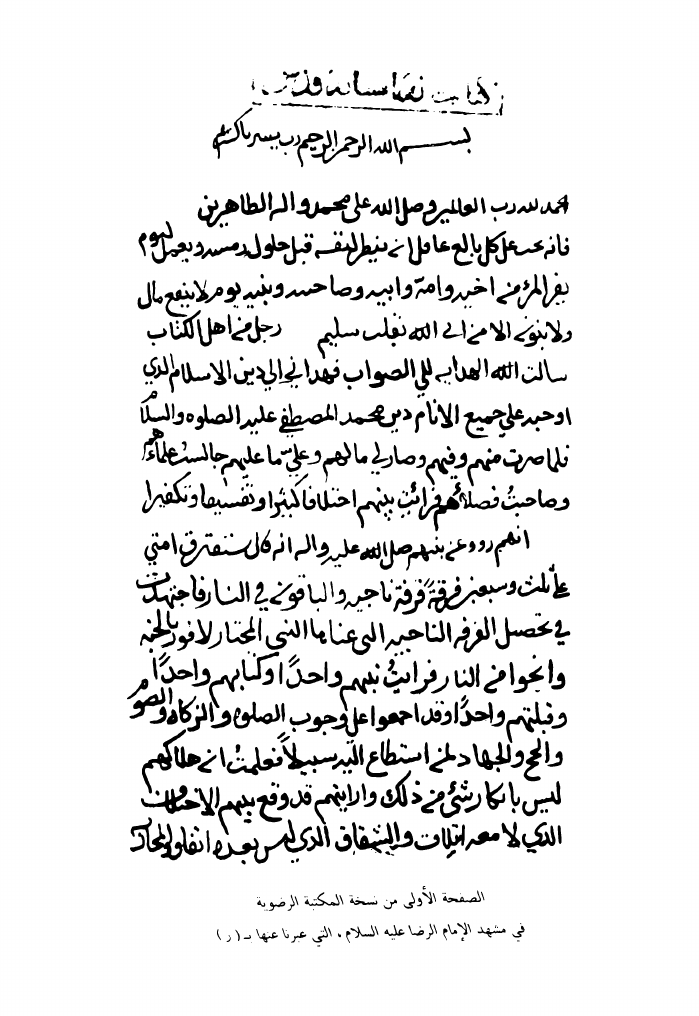 بسم الله الرحمن الرحيم رب يسر
الحمد لله رب العالمين وصل الله على محمد واله الطاهرين
فانه يجب على كل بالغ عاقل ان ينظر لنفسه قبل حلول رمسه ويعمل ليوم
يفر المرء من اخيه وامه وابيه وصاحبته وبنيه يوم لا ينفع مال
ولا بنون الا من اتى الله بقلب سليم رجل من اهل الكتاب
سالت الله الهداية الى الصواب فهداني الى دين الاسلام الذي
اوجبه على جميع الانام دين محمد المصطفى عليه الصلوة والسلام
فلما صرت منهم وفيهم وصار لي مالهم وعلي ما عليهم جالست علماءهم
وصاحبت فضلاءهم فرائيت بينهم اختلافا كثيرا وتفسيقا وتكفيرا
انهم رووا عن نبيهم صل الله عليه واله انه قال ستفترق امتي
على ثلث وسبعين فرقة فرقة ناجيه والباقون في النار فاجتهدت
في تحصيل الفرقه الناجيه التي عناها النبي المختار لافوز بالجنه
وانجوا من النار فرائيت نبيهم واحدًا وكتابهم واحدًا
وقبلتهم واحدًا وقد اجمعوا على وجوب الصلوه والزكاه والصوم
والحج والجهاد لمن استطاع اليه سبيلاً فعلمت ان هلاكهم
ليس بانكار شئ من ذلك وارايتهم قد وقع بينهم الاختلاف
الذي لا معه ائتلاف والشقاق الذي ليس بعده اتفاق
الصفحة الأولى من نسخة المكتبة الرضوية
في مشهد الإمام الرضا عليه السلام ، التي عبرنا عنها بـ ( ر )